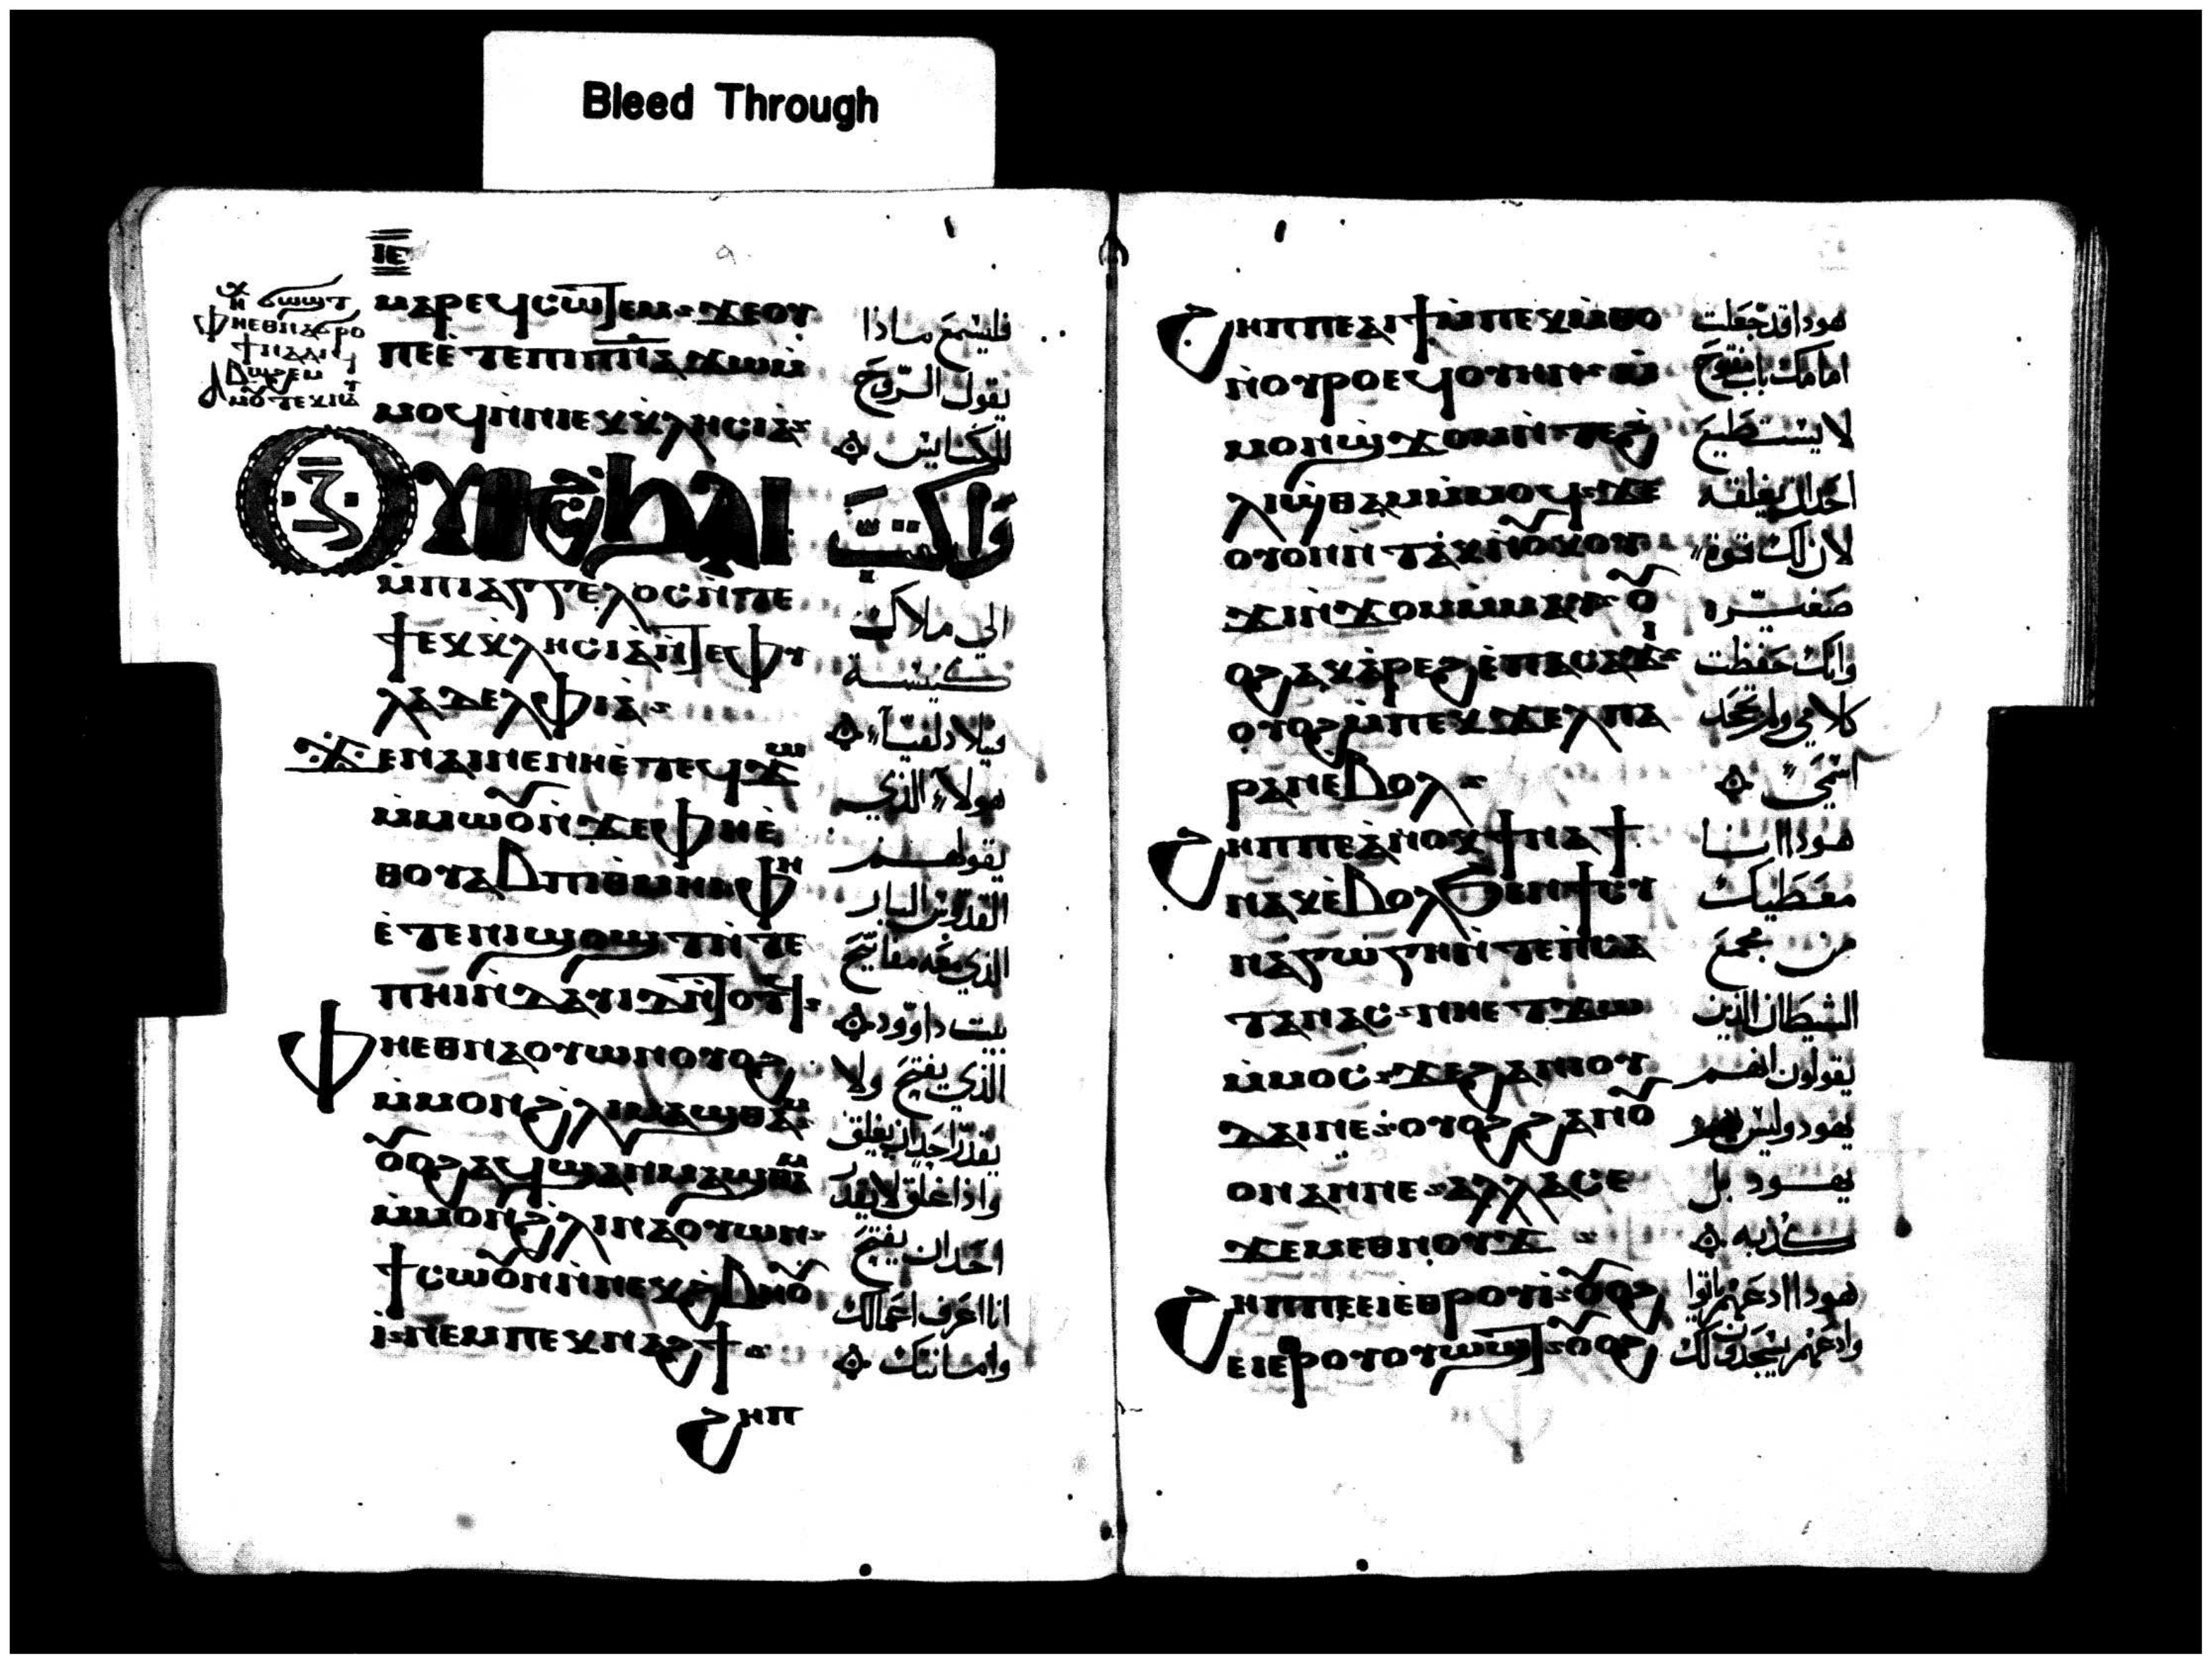 Bleed Through
ⲓⲉ
ⲙⲁⲣⲉϥⲥⲱⲧⲉⲙ ϫⲉⲟⲩ
ⲡⲉⲉⲧⲉⲡⲓⲡⲛⲁ ϫⲱⲙ
ⲙⲟϥⲛⲛⲓⲉⲕⲕⲗⲏⲥⲓⲁ
ⲟⲩⲟϩⲥϧⲁⲓ
ⲙⲡⲓⲁⲅⲅⲉⲗⲟⲥⲛⲧⲉ
ϯⲉⲕⲕⲗⲏⲥⲓⲁⲛⲧⲉⲫⲩ
ⲗⲁⲇⲉⲗⲫⲓⲁ
ϫⲉⲛⲁⲓⲛⲉⲛⲏⲉⲧⲉϥϫⲱ
ⲙⲙⲱⲟⲩⲛϫⲉⲫⲏⲉ
ⲑⲟⲩⲁⲃⲡⲓⲑⲙⲏⲓⲫⲏ
ⲉⲧⲉⲛⲓϣⲟϣⲧⲛⲧⲉ
ⲡⲏⲓⲛⲇⲁⲩⲓⲇⲛⲧⲟⲧϥ
ⲫⲏⲉⲑⲛⲁⲟⲩⲱⲛⲟⲩⲟϩ
ⲙⲙⲟⲛϩⲗⲓⲛⲁϣⲑⲁⲙ
ⲟⲩⲟϩⲁϥϣⲁⲛⲙⲁϣⲑⲁⲙ
ⲙⲙⲟⲛϩⲗⲓⲛⲁⲟⲩⲱⲛ
ϯⲥⲱⲟⲩⲛⲛⲛⲉⲕϩⲃⲏⲟⲩ
ⲓ ⲛⲉⲙⲡⲉⲕⲛⲁϩϯ
ϩⲏⲡ
فليسمع ماذا
يقول الروح
للكنايس
واكتب
الي ملاك
كنيسة
فيلادلفيا
هولاء الذي
يقولهم
القدوس البار
الذي معه مفاتيح
بيت داوود
الذي يفتح ولا
يقدر احد ان يغلق
واذا اغلق لا يقدر
احد ان يفتح
انا اعرف اعمالك
وامانتك
ϩⲏⲡⲡⲉⲁⲓϯⲙⲡⲉⲕⲙⲑⲟ
ⲛⲟⲩⲣⲟⲉϥⲟⲩⲏⲛ ⲙ
ⲙⲟⲛϣϫⲟⲙⲛⲧⲉϩ
ⲗⲓϣⲑⲁⲙⲙⲙⲟϥ ϫⲉ
ⲟⲩⲟⲛⲛⲧⲁⲕⲛⲟⲩⲕⲟⲩ
ϫⲓⲛϫⲟⲙⲙⲙⲁⲩ ⲟⲩ
ⲟϩⲁⲕⲁⲣⲉϩⲉⲡⲁⲥⲁϫⲓ
ⲟⲩⲟϩⲙⲡⲉⲕϫⲉⲗⲡⲁ
ⲣⲁⲛⲉⲃⲟⲗ
ϩⲏⲡⲡⲉⲁⲛⲟⲕϯⲛⲁϯ
ⲛⲁⲕⲉⲃⲟⲗϧⲉⲛϯⲥⲩ
ⲛⲁⲅⲱⲅⲏⲛⲧⲉⲡⲥⲁ
ⲧⲁⲛⲁⲥ ⲛⲏⲉⲧϫⲱ
ⲙⲙⲟⲥ ϫⲉϩⲁⲛⲓⲟⲩ
ⲇⲁⲓⲛⲉ ⲟⲩⲟϩϩⲁⲛⲟⲩ
ⲟⲛⲁⲛⲛⲉ ⲁⲗⲗⲁⲥⲉ
ϫⲉⲙⲉⲑⲛⲟⲩϫ
ϩⲏⲡⲡⲉⲉⲓⲉⲑⲣⲟⲩⲓ ⲟⲩⲟϩ
ⲉⲓⲉⲑⲣⲟⲩⲟⲩⲱϣⲧ ⲟⲩⲟϩ
هودا قد جعلت
امامك باب مفتوح
لا يستطيع
احد ان يغلقه
لان لك قوة
صغيره
وانك حفظت
كلامي ولم تجحد
اسمي
هودا انا
معطيك
من مجمع
الشيطان الذين
يقولون انهم
يهود وليس هم
يهود بل
كذبه
هودا ادعهم ياتوا
وادعهم يسجدون لك